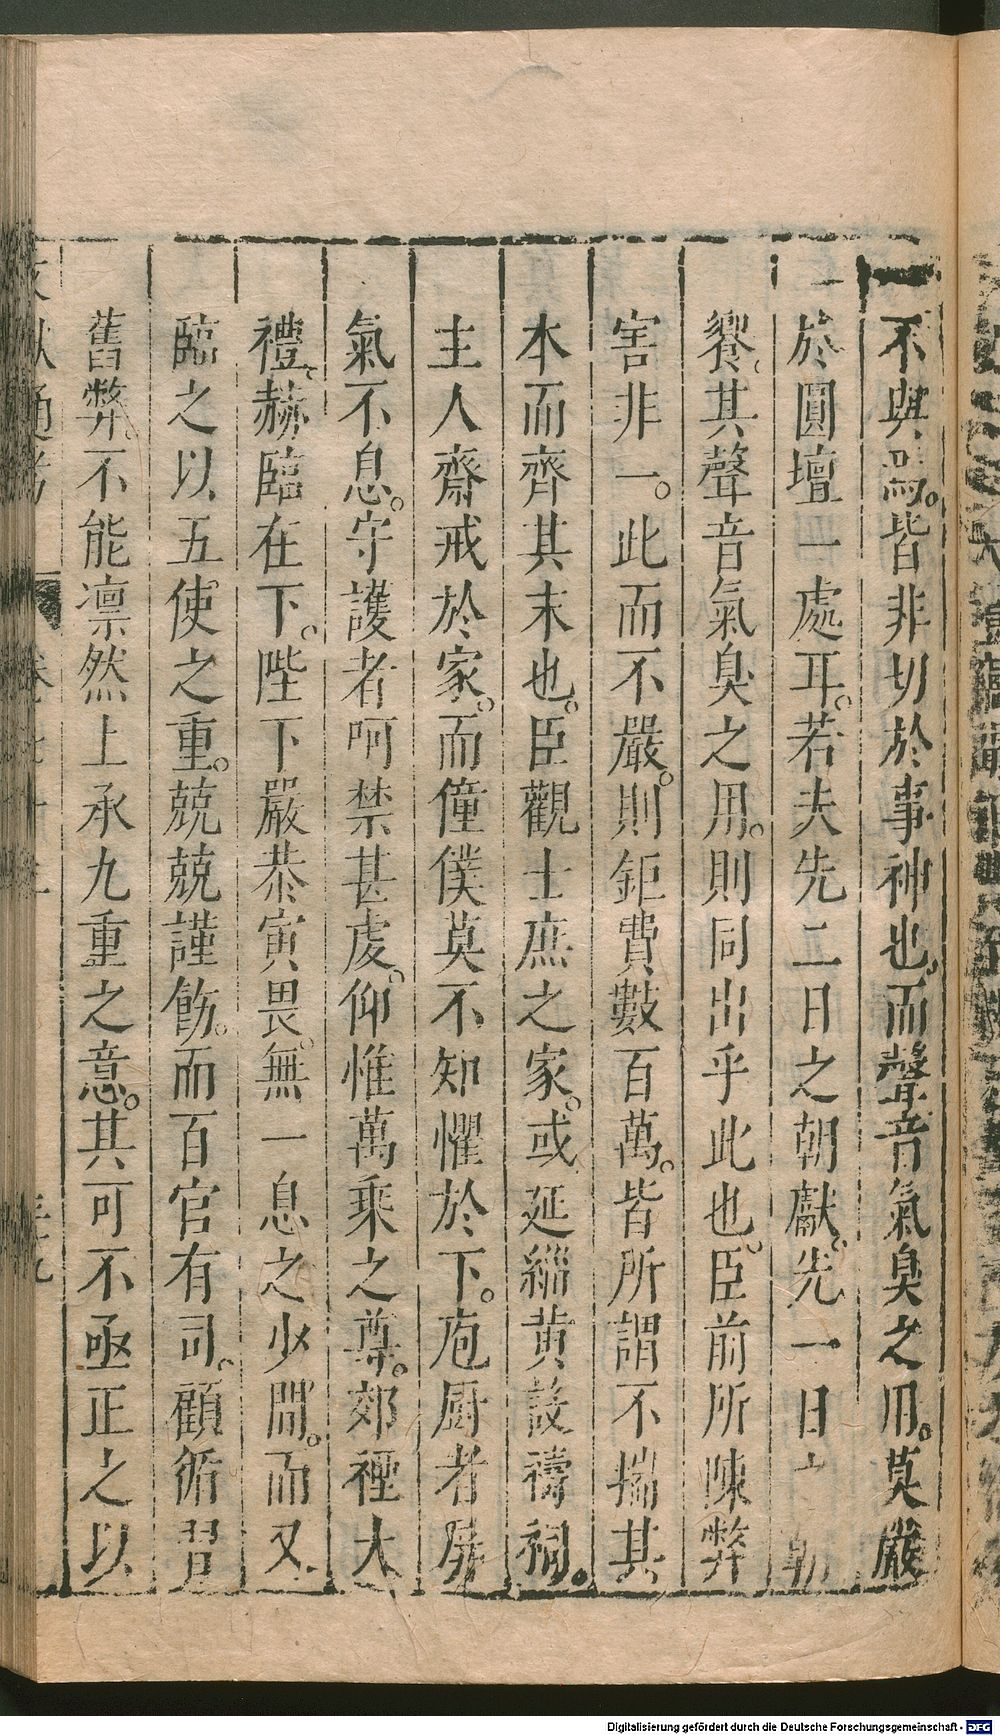 不與焉。皆非切於事神也。而聲音氣臭之用。莫嚴
於圓壇一處耳。若夫先二日之朝獻。先一日之朝
饗。其聲音氣臭之用。則同出乎此也。臣前所陳弊
害非一。此而不嚴。則鉅費數百萬。皆所謂不揣其
本而齊其末也。臣觀士庶之家。或延緇黄設禱祠。
主人齋戒於家。而僮僕莫不知懼於下。庖厨者屏
氣不息。守護者呵禁甚虔。仰惟萬乘之尊。郊禋大
禮。赫臨在下。陛下嚴恭寅畏。無一息之少間。而又
臨之以五使之重。兢兢謹飭。而百官有司。顧循習
舊弊。不能凛然上承九重之意。其可不亟正之以
文獻通考 卷七十 三九
Digitalisierung gefördert durch die Deutsche Forschungsgemeinschaft - DFG